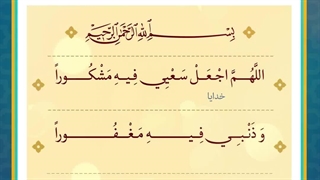 بِسْمِ اللَّهِ الرَّحْمَٰنِ الرَّحِيمِ
اللَّهُمَّ اجْعَلْ سَعْيِي فِيهِ مَشْكُوراً
خدایا
وَ ذَنْبِي فِيهِ مَغْفُوراً